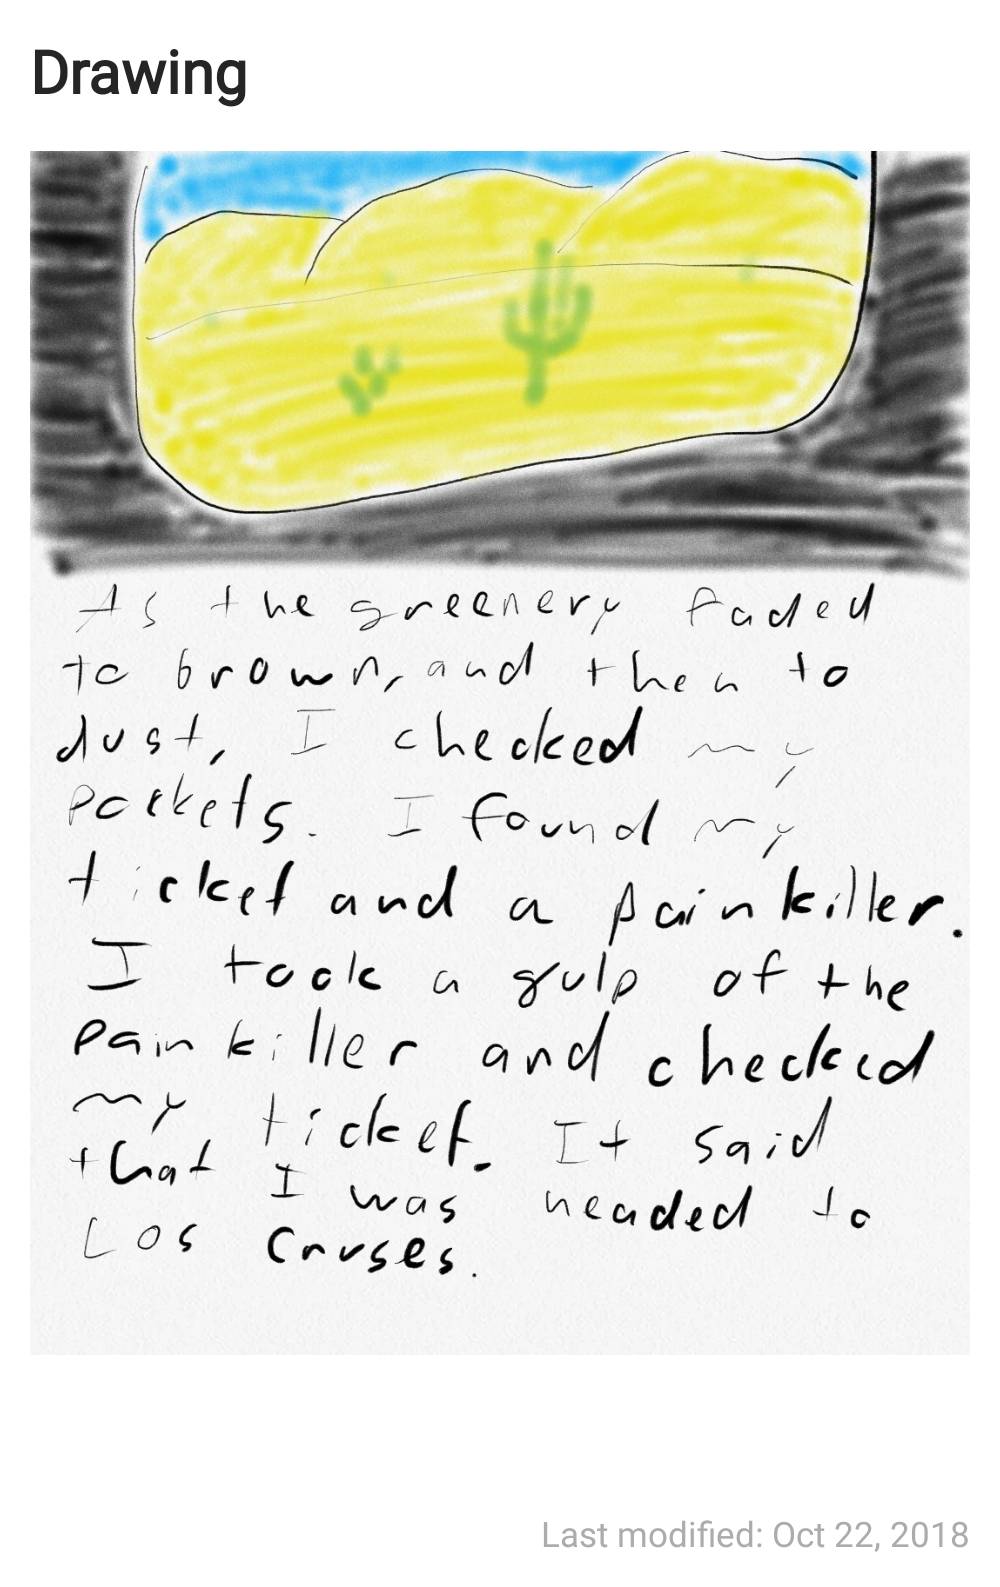 Drawing
As the greenery faded
to brown, and then to
dust, I checked my
pockets. I found my
ticket and a painkiller.
I took a gulp of the
painkiller and checked
my ticket. It said
that I was headed to
Los Cruses.
Last modified: Oct 22, 2018